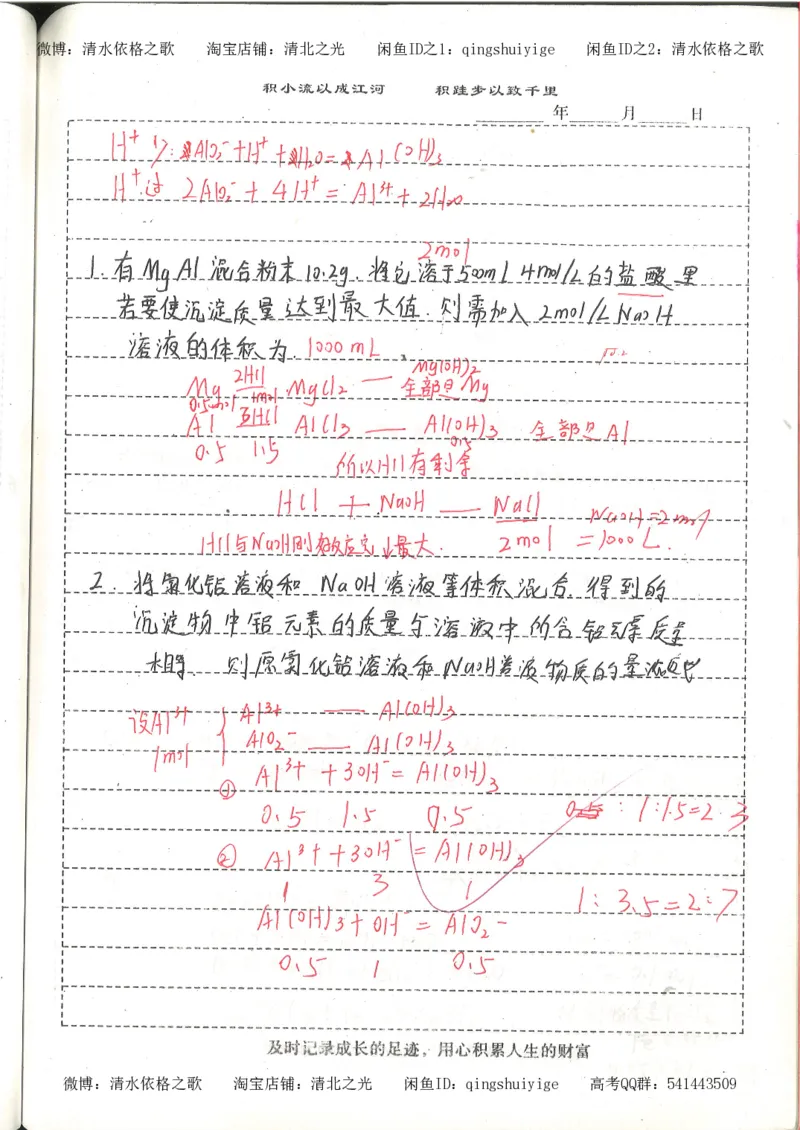 微博：清水依格之歌 淘宝店铺：清北之光 闲鱼ID之1：qingshuiyige 闲鱼ID之2：清水依格之歌
积小流以成江河 积跬步以致千里
年 月 日
H⁺少: AlO₂⁻+H⁺+H₂O=Al(OH)₃
H⁺过 2AlO₂⁻+4H⁺=Al³⁺+2H₂O
2mol
1.有MgAl混合粉末10.2g.将它溶于500ml 4mol/L的盐酸里
若要使沉淀质量达到最大值.则需加入2mol/L NaOH
溶液的体积为.1000mL.
Mg 2HCl MgCl₂ — Mg(OH)₂ 全部是Mg
0.5mol 1mol
Al 3HCl AlCl₃ — Al(OH)₃ 全部是Al
0.5 1.5 0.5
所以HCl有剩余
HCl + NaOH — NaCl NaOH=2mol
HCl与NaOH刚好反应完↓最大. 2mol =1000L.
2.将氯化铝溶液和NaOH溶液等体积混合.得到的
沉淀物中铝元素的质量与溶液中所含铝元素质量
相等 则原氯化铝溶液和NaOH溶液物质的量浓度比
设Al³⁺ Al³⁺ — Al(OH)₃
1mol AlO₂⁻ — Al(OH)₃
① Al³⁺+3OH⁻=Al(OH)₃
0.5 1.5 0.5 : 1:1.5=2:3
② Al³⁺+3OH⁻=Al(OH)₃
1 3 1 1:3.5=2:7
Al(OH)₃+OH⁻=AlO₂⁻
0.5 1 0.5
及时记录成长的足迹，用心积累人生的财富
微博：清水依格之歌 淘宝店铺：清北之光 闲鱼ID：qingshuiyige 高考QQ群：541443509